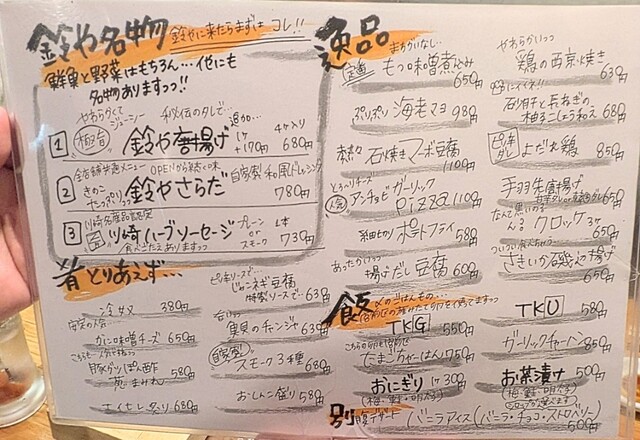 鈴や名物 鈴やに来たらまずはコレ!!
鮮魚と野菜はもちろん…他にも
名物ありますっつ!!
やわらかくて
ジューシー
秘伝のタレで
追加
1ヶ
+170円
4ヶ入り
1 鈴や唐揚げ 680円
OPENから続く味
きのこ
たっぷりっつ
自家製 和風ドレッシング
2 鈴やさらだ 780円
川崎名産品認定
3 川崎ハーブソーセージ
プレーン
or
スモーク
1本
730円
食べごたえありますっつ
肴 とりあえず…
冷奴 380円
650円
豚 ポン酢 580円
680円
ピリ辛ソースで…
じゃこネギ豆腐
特製ソースで… 630円
チャンジャ 630円
自家製 スモーク3種 680円
おしんこ盛り 580円
逸品
まちがいなし
定番 もつ味噌煮込み
650円
ぷりぷり 海老マヨ 980円
熱々 石焼きマーボ豆腐
1100円
とろ〜りチーズ
人気 アンチョビガーリック
pizza 1100円
細切り ポテトフライ 580円
あったかいっつ
揚げだし豆腐 600円
やわらかいっつ
鶏の西京焼き
630円
砂肝と長ねぎの
柚子こしょう和え 680円
ピリ辛
ダレ よだれ鶏 850円
手羽先唐揚げ
650円
クロッケ 3ヶ
650円
ついつい食べちゃう
さきいか磯辺揚げ
650円
飯 〆のごはんもの…
TKG 550円
たまごチャーハン 750円
おにぎり 1ヶ 300円
(梅・鮭・明太子)
TKU 580円
ガーリックチャーハン 850円
お茶漬け 500円
(梅・鮭・明太子)
別腹デザート バニラアイス(バニラ・チョコ・ストロベリー)
500円